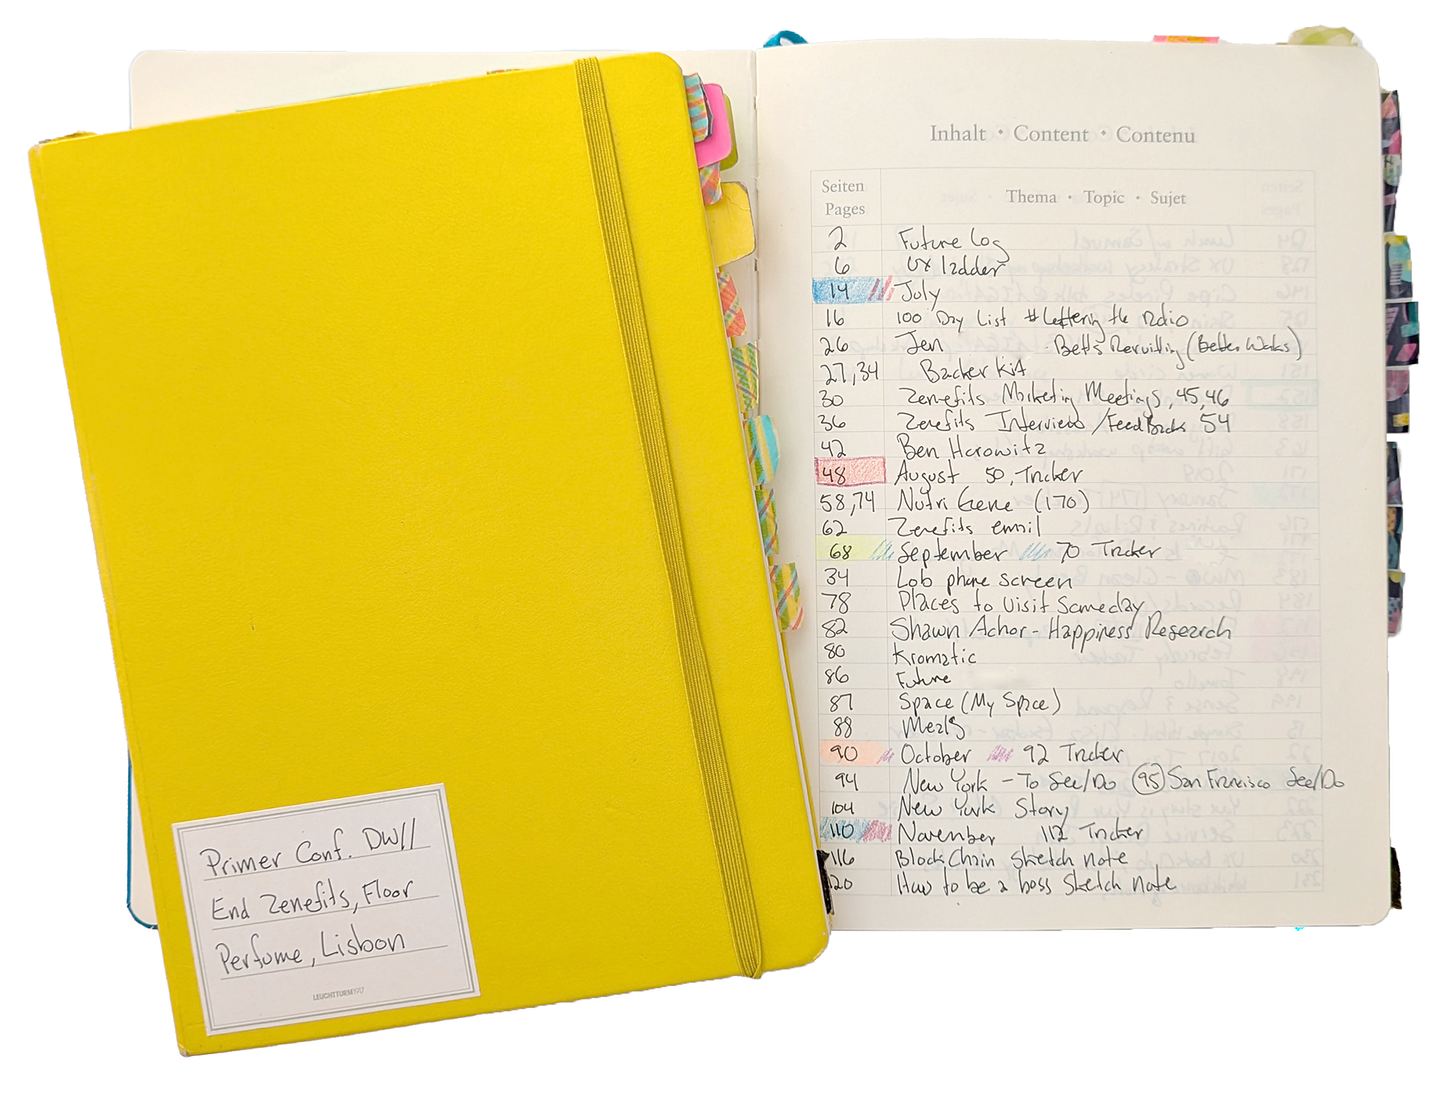 Primer Conf. DW//
End Zenefits, Floor
Perfume, Lisbon
LEUCHTTURM1917
Inhalt · Content · Contenu
Seiten Pages Thema · Topic · Sujet
2 Future Log
6 UX ladder
14 July
16 100 Day List #Lettering the radio
26 Jen - Betts Recruiting (Better Works)
27,34 Backer Kit
30 Zenefits Marketing Meetings, 45,46
36 Zenefits Interview /FeedBack 54
42 Ben Horowitz
48 August 50, Tracker
58,74 Nutri Gene (170)
62 Zenefits email
68 September 70 Tracker
34 Lob phone screen
78 Places to visit someday
82 Shawn Achor - Happiness Research
80 Kromatic
86 Future
87 Space (My Space)
88 Meals
90 October 92 Tracker
94 New York - To See/Do (95) San Francisco See/Do
104 New York Story
110 November 112 Tracker
116 BlockChain Sketch note
120 How to be a boss Sketch note